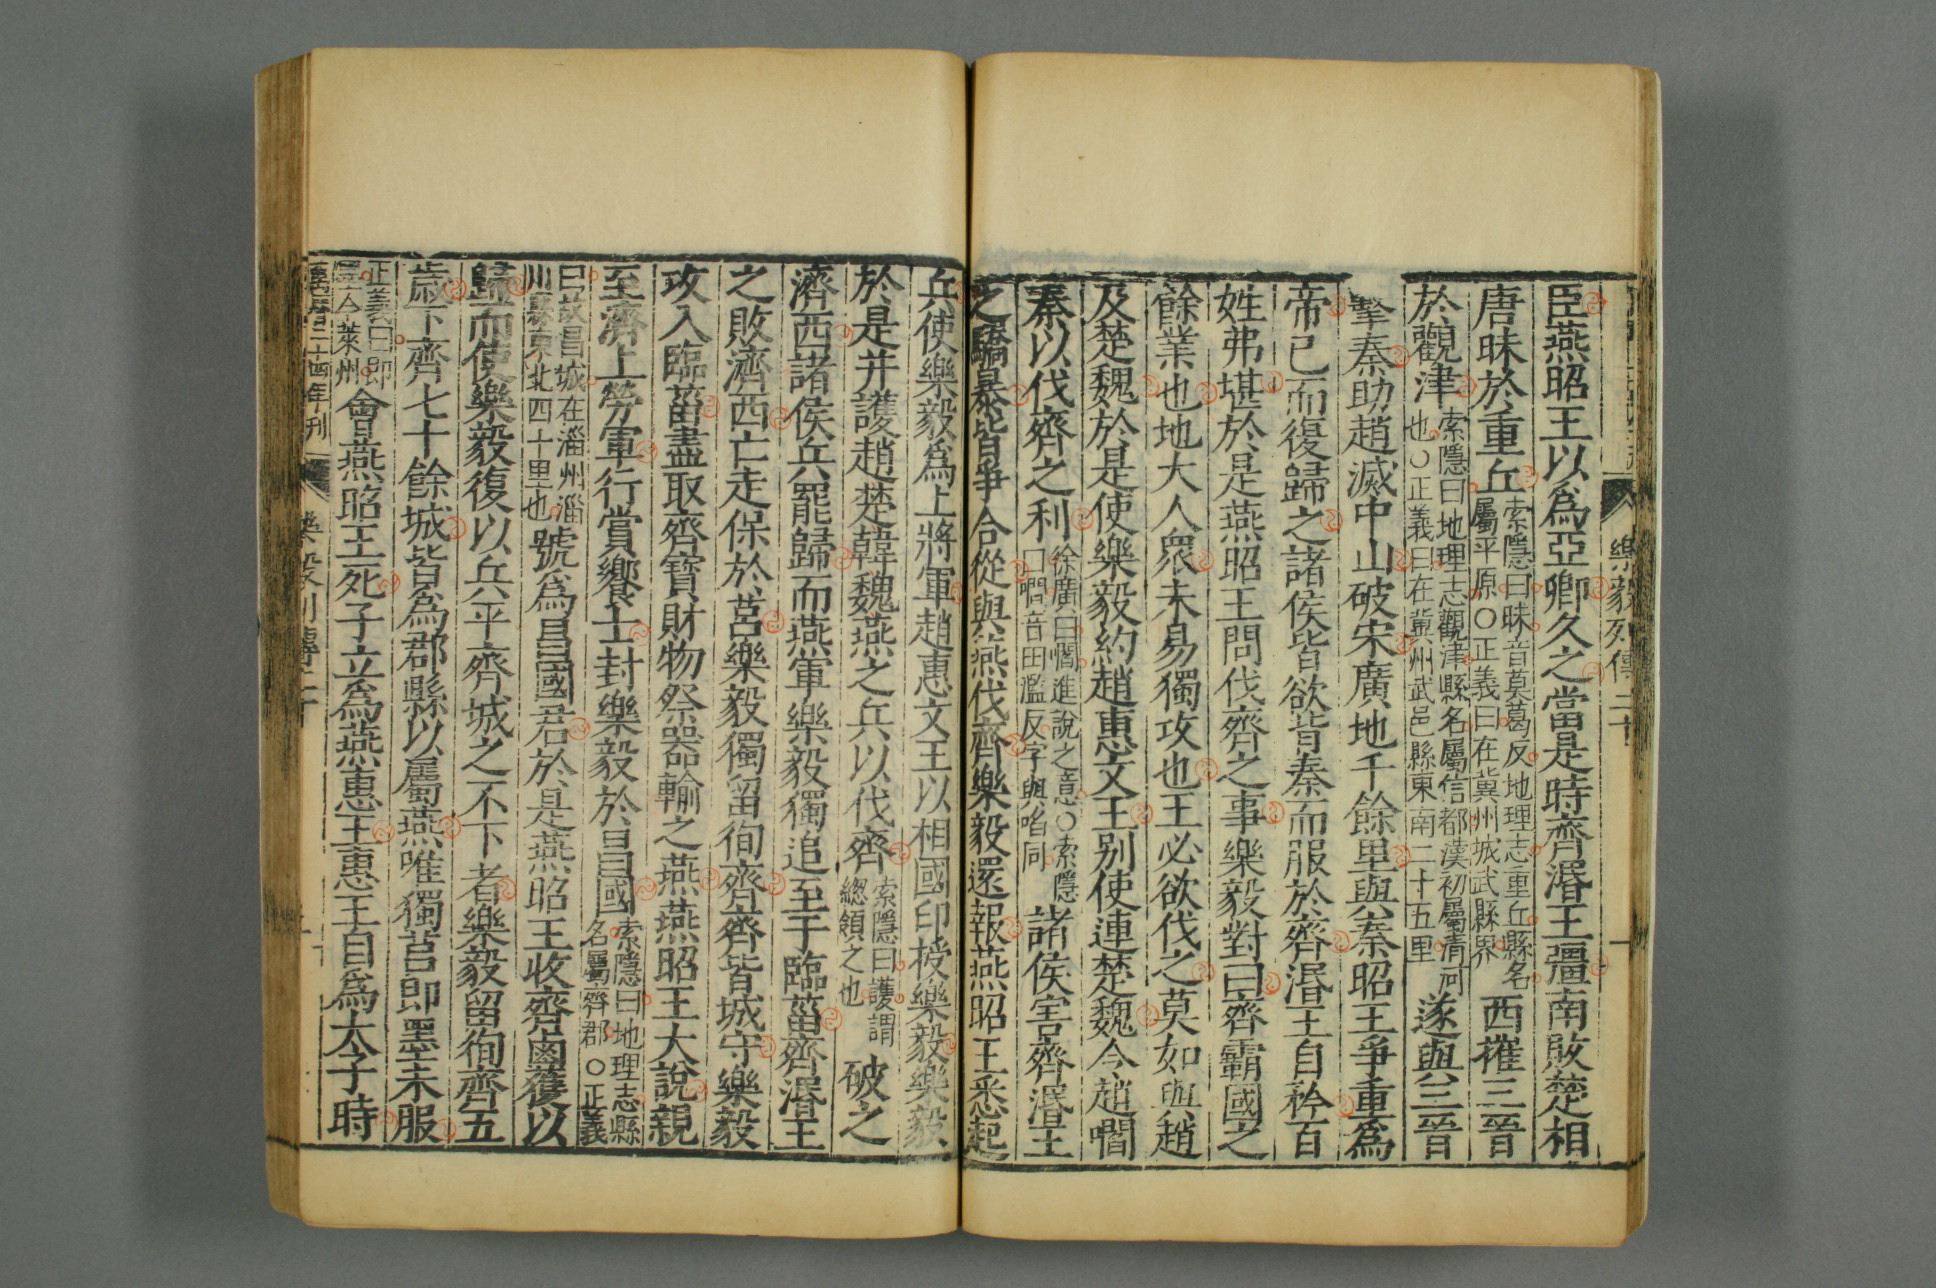 樂毅列傳二十
臣燕昭王以爲亞卿久之當是時齊湣王彊南敗楚相
唐昧於重丘索隱曰昧音莫葛反地理志重丘縣名屬平原○正義曰在冀州城武縣界西摧三晉
於觀津索隱曰地理志觀津縣名屬信都漢初屬清河也○正義曰在冀州武邑縣東南二十五里遂與三晉
擊秦助趙滅中山破宋廣地千餘里與秦昭王爭重爲
帝已而復歸之諸侯皆欲背秦而服於齊湣王自矜百
姓弗堪於是燕昭王問伐齊之事樂毅對曰齊霸國之
餘業也地大人衆未易獨攻也王必欲伐之莫如與趙
及楚魏於是使樂毅約趙惠文王別使連楚魏令趙嚪
秦以伐齊之利徐廣曰嚪進說之意○索隱曰嚪音田濫反字與啗同諸侯害齊湣王
之驕暴皆爭合從與燕伐齊樂毅還報燕昭王悉起
兵使樂毅爲上將軍趙惠文王以相國印授樂毅樂毅
於是并護趙楚韓魏燕之兵以伐齊索隱曰護謂總領之也破之
濟西諸侯兵罷歸而燕軍樂毅獨追至于臨菑齊湣王
之敗濟西亡走保於莒樂毅獨留徇齊齊皆城守樂毅
攻入臨菑盡取齊寶財物祭器輸之燕燕昭王大說親
至濟上勞軍行賞饗士封樂毅於昌國索隱曰地理志縣名屬齊郡○正義
曰故昌城在淄州淄川縣東北四十里也號爲昌國君於是燕昭王收齊鹵獲以
歸而使樂毅復以兵平齊城之不下者樂毅留徇齊五
歲下齊七十餘城皆爲郡縣以屬燕唯獨莒即墨未服
正義曰即墨今萊州會燕昭王死子立爲燕惠王惠王自爲太子時
萬曆二十四年刊
樂毅列傳二十